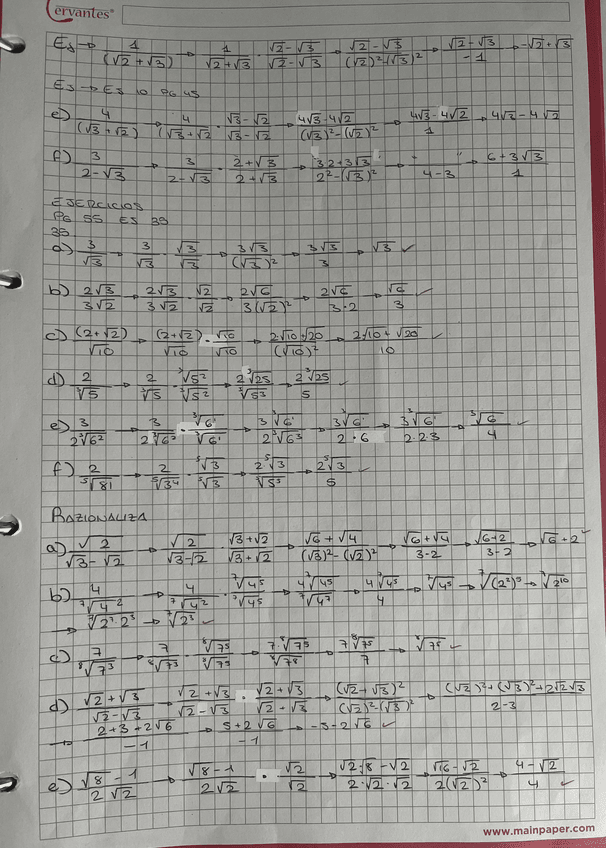 Cervantes®
Ej → 1/(√2 + √3) → 1/(√2+√3) · (√2-√3)/(√2-√3) → (√2-√3)/((√2)²-(√3)²) → (√2-√3)/-1 → -√2+√3
Ej → Es 10 PG 45
e) 4/(√3+√2) → 4/(√3+√2 · (√3-√2)/(√3-√2) → (4√3-4√2)/((√3)²-(√2)²) → (4√3-4√2)/1 → 4√3-4√2
f) 3/(2-√3) → 3/(2-√3) · (2+√3)/(2+√3) → (3·2+3√3)/(2²-(√3)²) → "/(4-3) → (6+3√3)/1
EJERCICIOS
PG 55 ES 39
39.
a) 3/√3 → 3/√3 · √3/√3 → 3√3/(√3)² → 3√3/3 → √3 ✓
b) 2√3/3√2 → 2√3/3√2 · √2/√2 → 2√6/3(√2)² → 2√6/3·2 → √6/3 ✓
c) (2+√2)/√10 → (2+√2)/√10 · √10/√10 → (2√10+√20)/(√10)² → (2√10+√20)/10 ✓
d) 2/³√5 → 2/³√5 · ³√5²/³√5² → 2³√25/³√5³ → 2³√25/5 ✓
e) 3/2³√6² → 3/2³√6² · ³√6¹/³√6¹ → 3³√6¹/2³√6³ → 3³√6¹/2·6 → 3³√6¹/2·2·3 → ³√6/4 ✓
f) 2/⁵√81 → 2/⁵√3⁴ · ⁵√3/⁵√3 → 2⁵√3/⁵√5⁵ → 2⁵√3/5 ✓
RAZIONALIZA
a) √2/(√3-√2) → √2/(√3-√2) · (√3+√2)/(√3+√2) → (√6+√4)/((√3)²-(√2)²) → (√6+√4)/(3-2) → (√6+2)/(3-2) → √6+2 ✓
b) 4/⁷√4² → 4/⁷√4² · ⁷√4⁵/⁷√4⁵ → 4⁷√4⁵/⁷√4⁷ → 4⁷√4⁵/4 → ⁷√4⁵ → ⁷√(2²)⁵ → ⁷√2¹⁰
→ ⁷√2⁷·2³ → ⁷√2³ ✓
c) 7/⁸√7³ → 7/⁸√7³ · ⁸√7⁵/⁸√7⁵ → 7·⁸√7⁵/⁸√7⁸ → 7⁸√7⁵/7 → ⁸√7⁵ ✓
d) (√2+√3)/(√2-√3) → (√2+√3)/(√2-√3) · (√2+√3)/(√2+√3) → (√2+√3)²/((√2)²-(√3)²) → ((√2)²+(√3)²+2√2√3)/(2-3)
→ (2+3+2√6)/-1 → (5+2√6)/-1 → -5-2√6 ✓
e) (√8-1)/2√2 → (√8-1)/2√2 · √2/√2 → (√2·√8-√2)/(2·√2·√2) → (√16-√2)/2(√2)² → (4-√2)/4 ✓
www.mainpaper.com